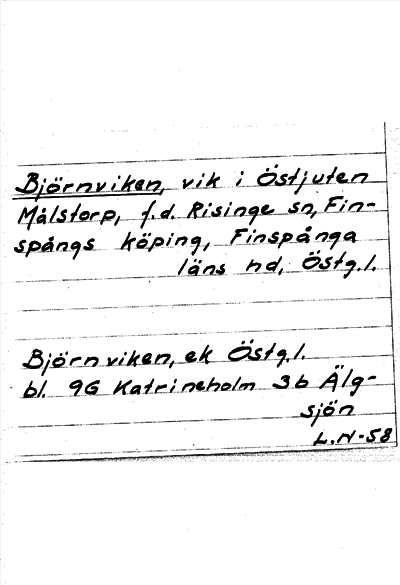 Björnviken, vik i Östjuten
Målstorp, f.d. Risinge sn, Fin-
spångs köping, Finspånga
läns hd, Östg.l.
Björnviken, ek Östg.l.
bl. 9G Katrineholm 3b Älg-
sjön
L.N-58